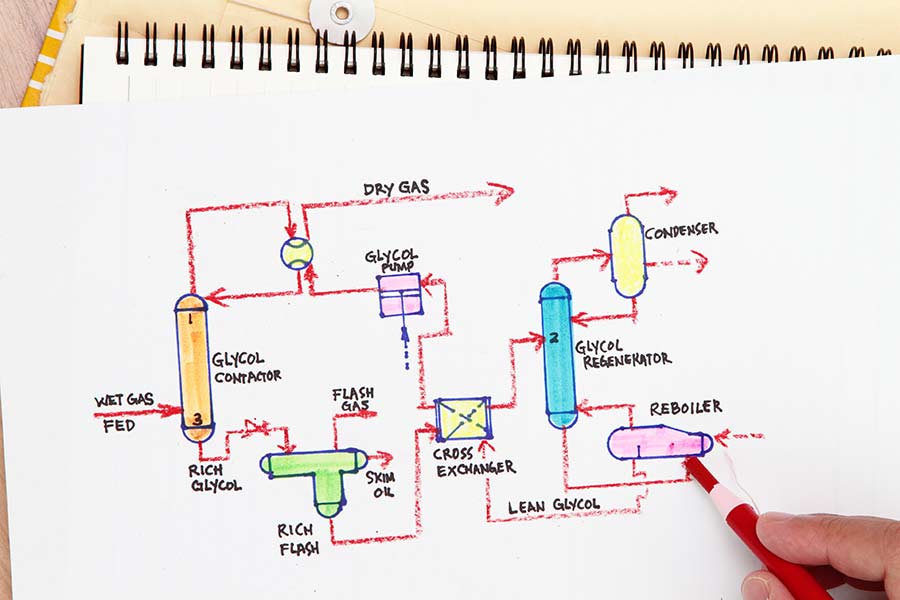 DRY GAS
GLYCOL
PUMP
CONDENSER
1
2
GLYCOL
CONTACTOR
GLYCOL
REGENERATOR
WET GAS
FED
3
FLASH
GAS
REBOILER
CROSS
EXCHANGER
RICH
GLYCOL
SKIM
OIL
LEAN GLYCOL
RICH
FLASH